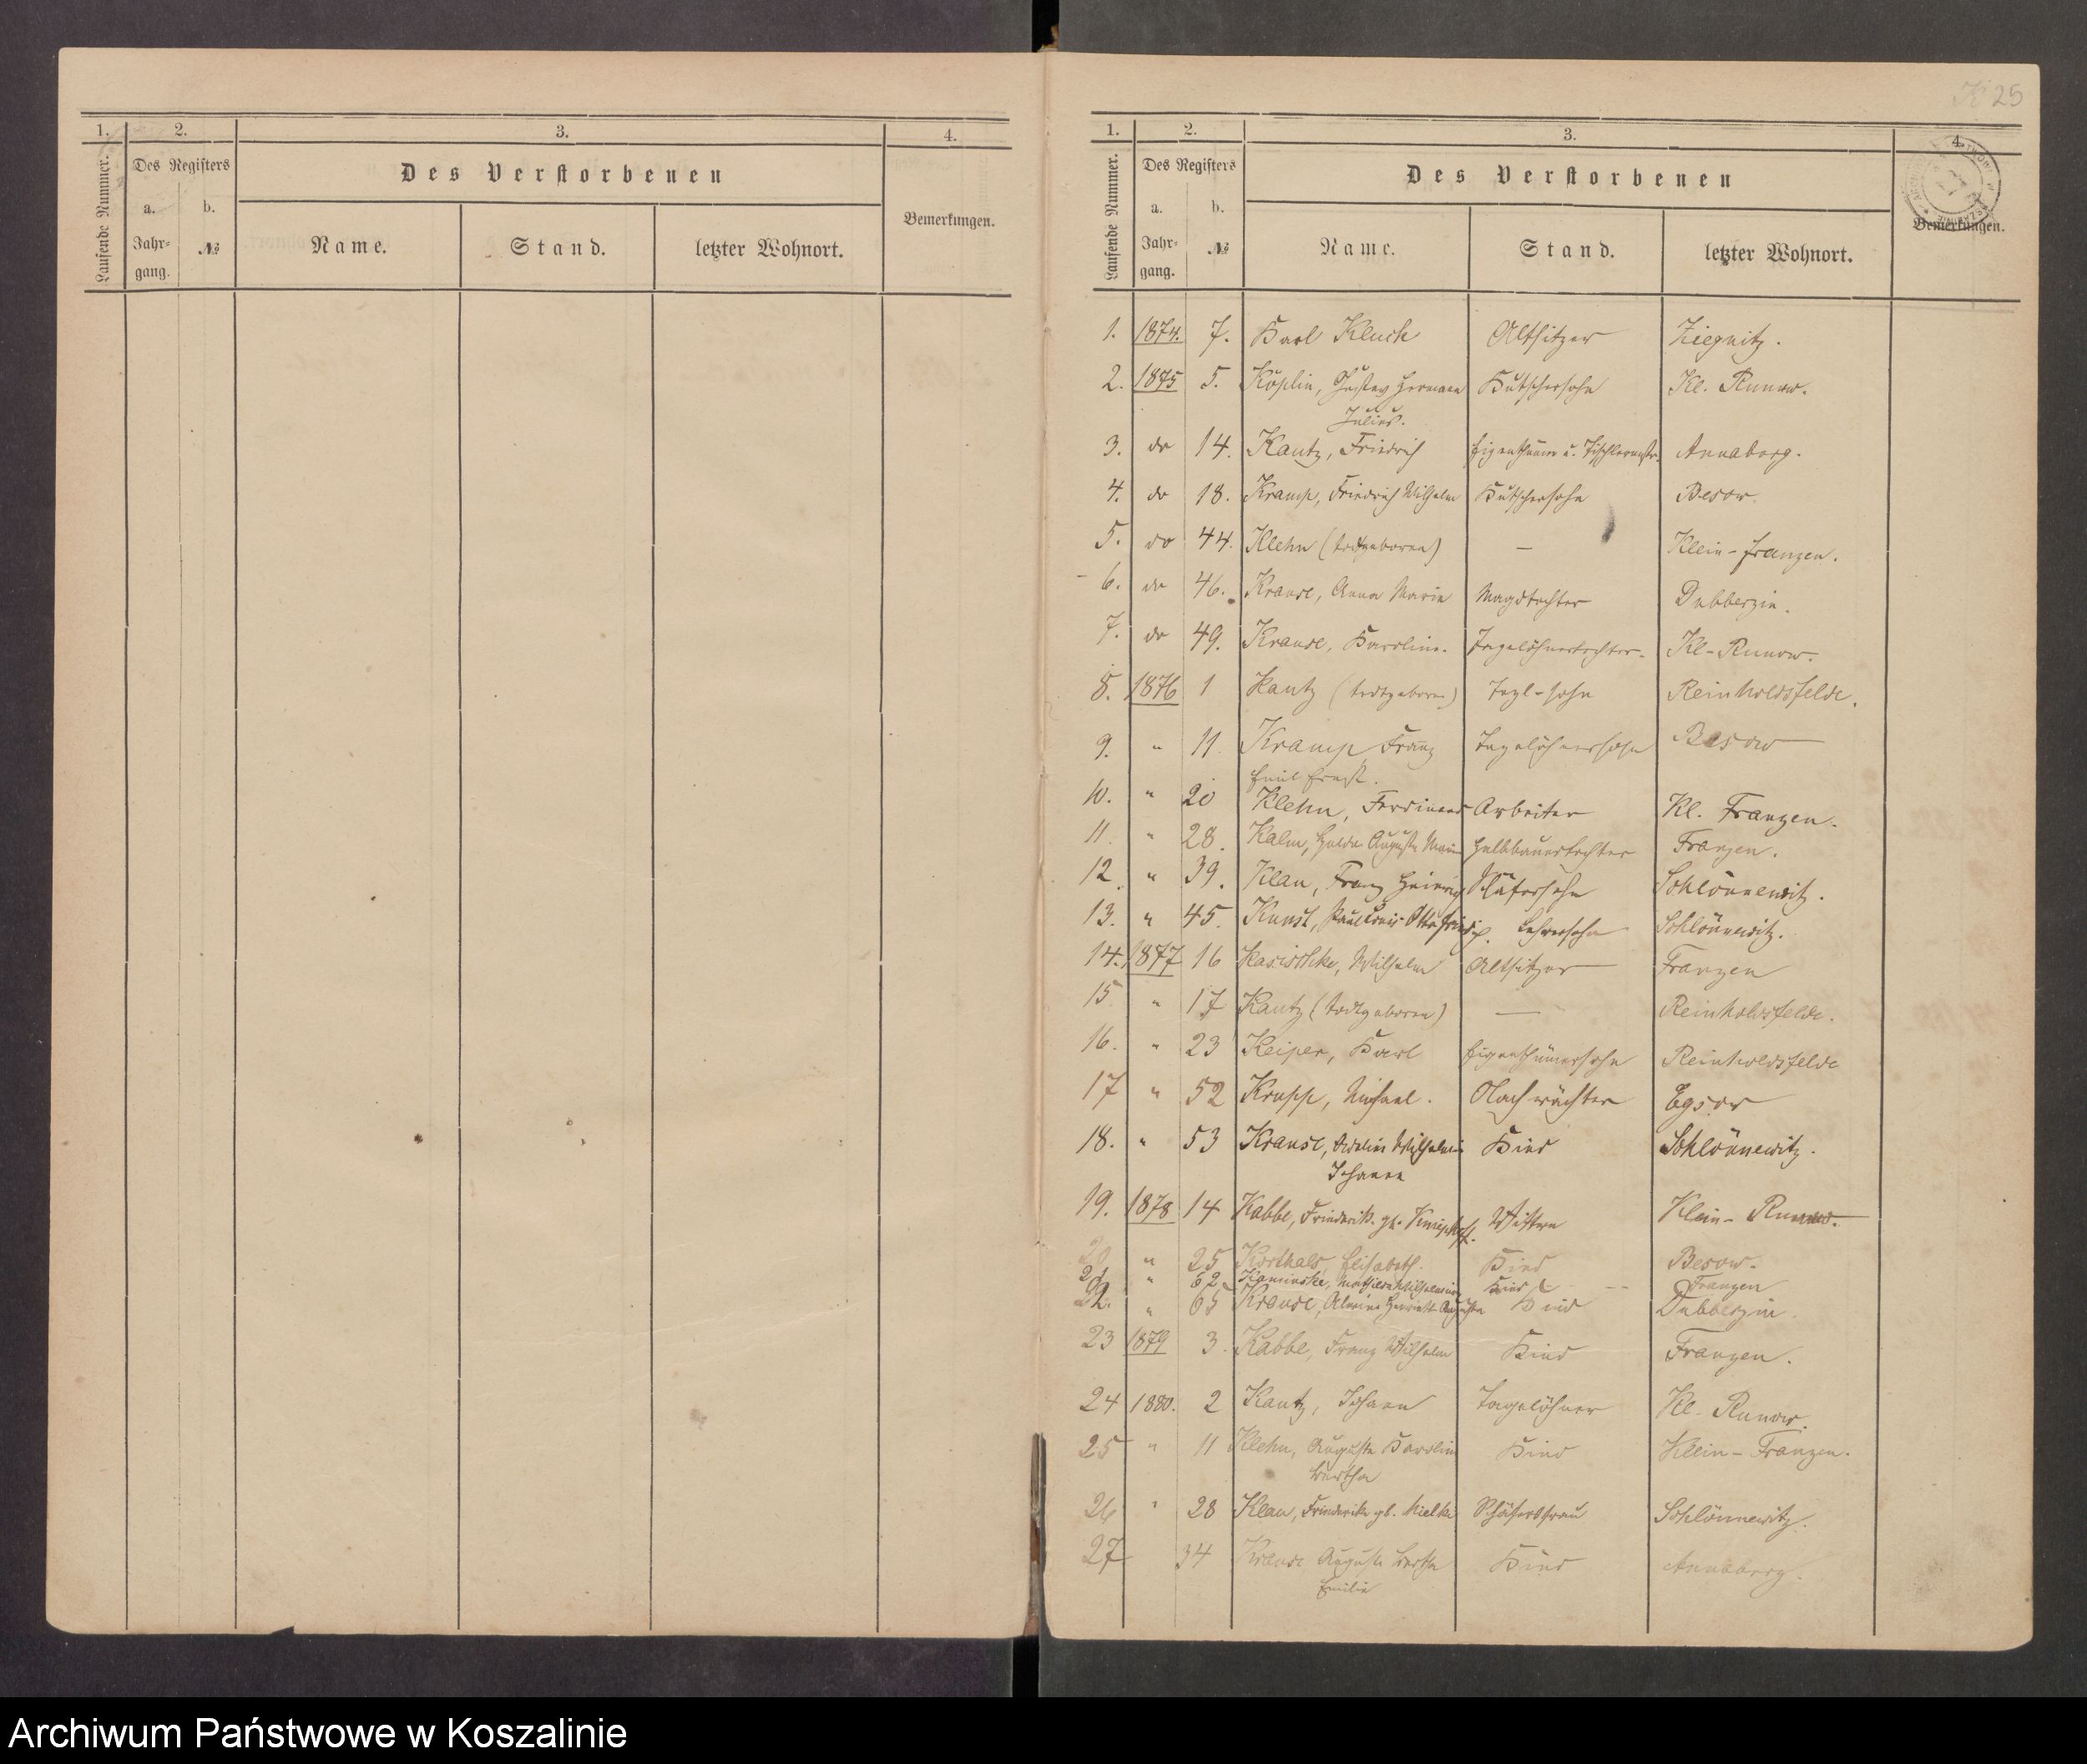 1. 2. 3. 4.
Laufende Nummer. Des Registers Des Verstorbenen Bemerkungen.
a. b.
Jahrgang. № Name. Stand. letzter Wohnort.
K 25
1. 2. 3. 4.
Laufende Nummer. Des Registers Des Verstorbenen Bemerkungen.
a. b.
Jahrgang. № Name. Stand. letzter Wohnort.
1. 1874. 7. Karl Kluck Altsitzer Ziegnitz.
2. 1875 5. Köplin, Gustav Hermann Kutschersohn Kl. Runow.
Julius.
3. do 14. Kautz, Friedrich Eigenthümer u. Tischlermstr. Annaberg.
4. do 18. Kramp, Friedrich Wilhelm Kutschersohn Besow
5. do 44. Klehn (todtgeboren) — Klein-Franzen.
6. do 46. Krause, Anna Marie Magdtochter Dubberzin.
7. do 49. Krause, Karoline. Tagelöhnertochter. Kl-Runow.
8. 1876 1 Kautz (todtgeboren) Tagl-sohn Reinholdsfelde.
9. " 11. Kramp Franz Tagelöhnersohn Besow
Emil Ernst.
10. " 20 Klehn, Ferdinand Arbeiter Kl. Franzen.
11. " 28. Kalm, Hulda Auguste Marie Halbbauertochter Franzen.
12. " 39. Klau, Franz Heinrich Schäfersohn Schlönnewitz.
13. " 45. Kunst, Paul Louis Otto Friedrich. Lehrersohn Schlönnewitz.
14. 1877 16 Kasischke, Wilhelm Altsitzer Franzen
15 " 17 Kautz (todtgeboren) — Reinholdsfelde.
16. " 23 Keiper, Karl Eigenthümersohn Reinholdsfelde
17 " 52 Krupp, Michael. Nachtwächter Egsow
18. " 53 Krause, Wilhelmine Kind Schlönnewitz.
Johanna
19. 1878 14 Kabbe, Friederik. gb. Kniephoff. Wittwe Klein-Runow.
20 " 25 Korthals, Elisabeth. Kind Besow.
21 " 62 Kaminske, Mathilde Wilhelmine Kind Franzen
22. " 65 Krause, Alwine Henriette Auguste Kind Dubberzin
23 1879 3. Kabbe, Franz Wilhelm Kind Franzen.
24 1880. 2 Kautz, Johann Tagelöhner Kl. Runow.
25 " 11 Klehn, Auguste Karoline Kind Klein-Franzen.
Bertha
26 " 28 Klau, Friederike gb. Mielke Schäfersfrau Schlönnewitz.
27 34 Krause Auguste Bertha Kind Annaberg.
Emilie
Archiwum Państwowe w Koszalinie